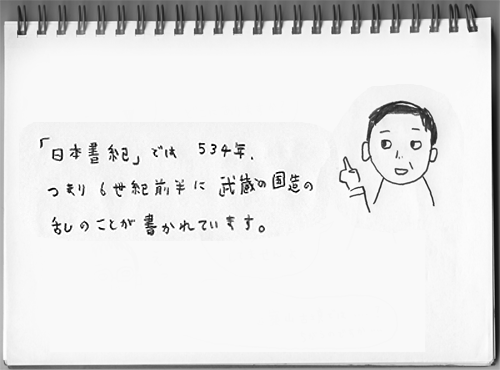 「日本書紀」では 534年、
つまり 6世紀前半に 武蔵の国造の
乱のことが書かれています。